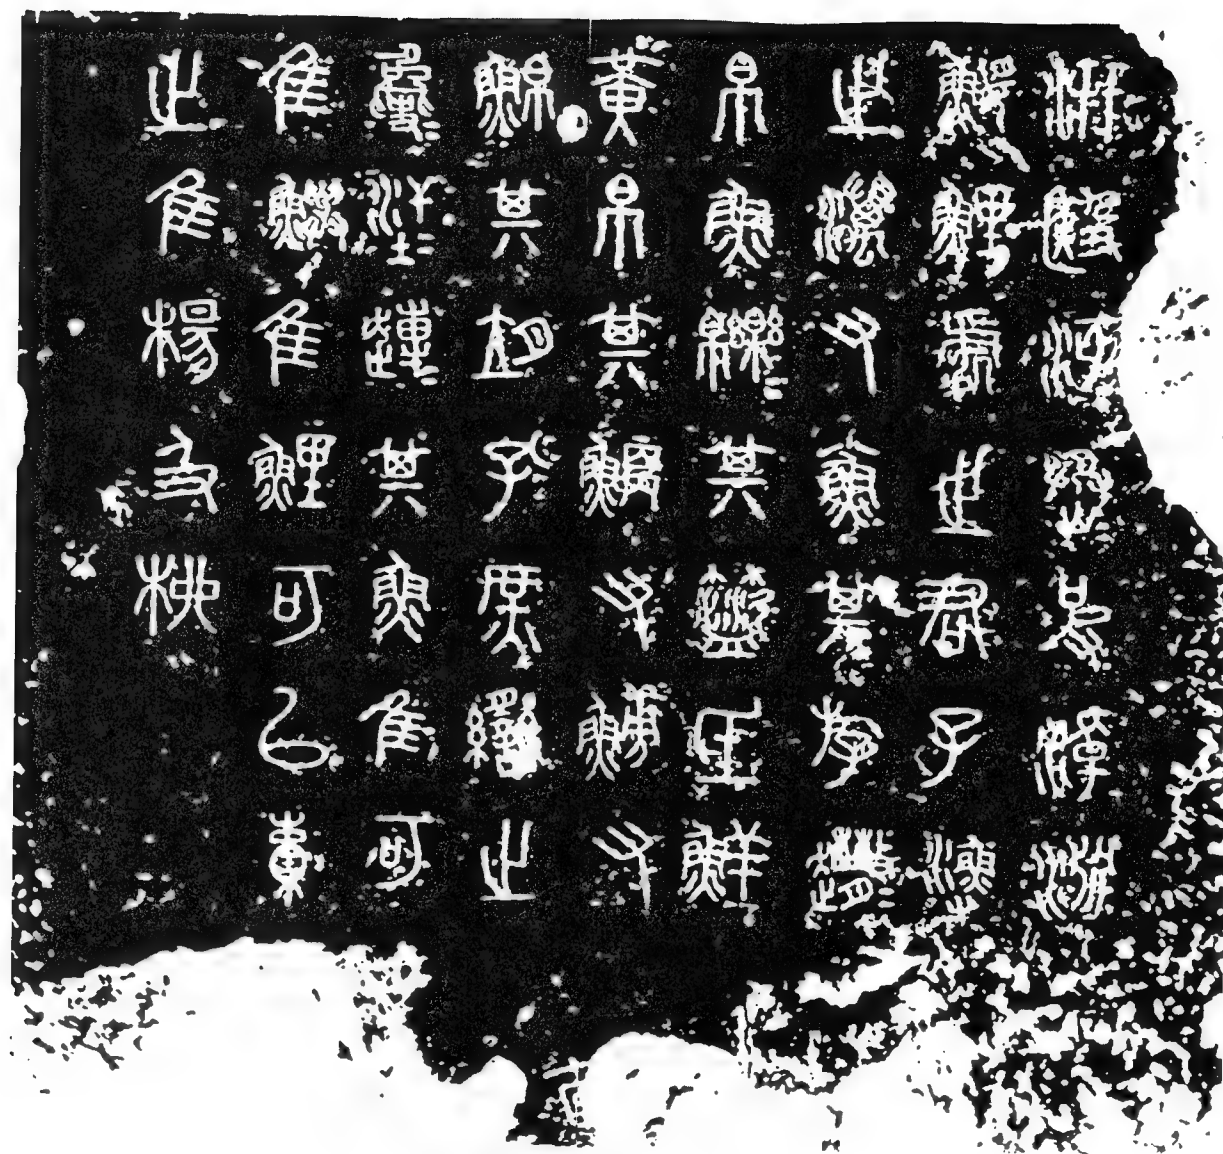 汧殹沔丞皮淖淵
鰋鯉處之君子漁
之澫又小魚其斿趩
帛魚皪其氐鮮
黃帛其鯾又鯆又
鮊其孔庶臠之
汗其魚隹可
隹鱮隹鯉可以橐
之隹楊及柳